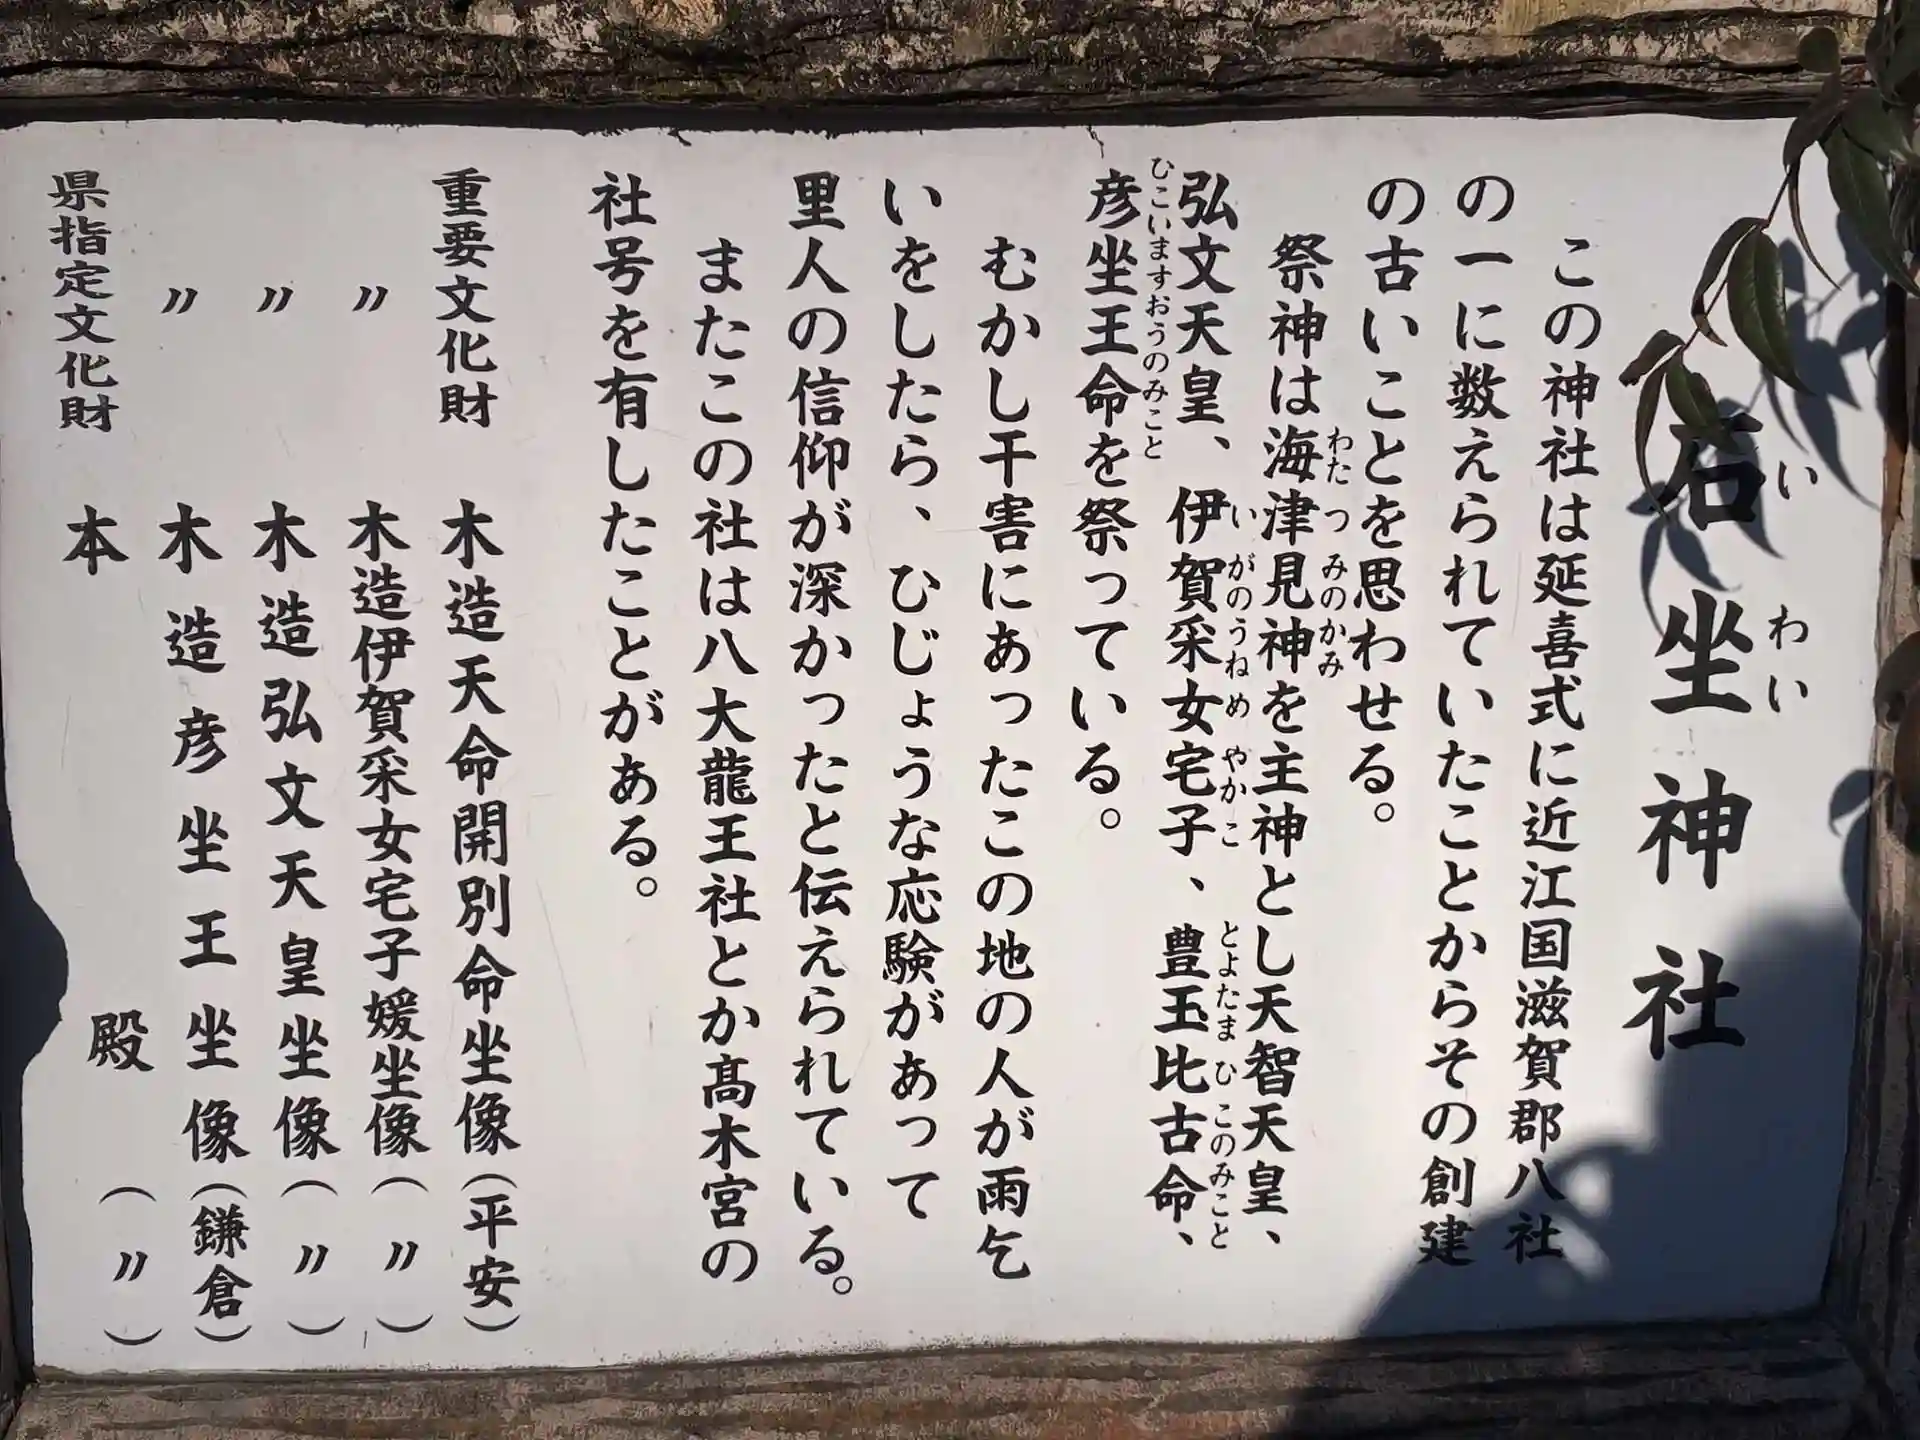 石坐神社
いわい
この神社は延喜式に近江国滋賀郡八社
の一に数えられていたことからその創建
の古いことを思わせる。
祭神は海津見神を主神とし天智天皇、
わたつみのかみ
弘文天皇、伊賀采女宅子、豊玉比古命、
いがのうねめやかこ とよたまひこのみこと
彦坐王命を祭っている。
ひこいますおうのみこと
むかし干害にあったこの地の人が雨乞
いをしたら、ひじょうな応験があって
里人の信仰が深かったと伝えられている。
またこの社は八大龍王社とか髙木宮の
社号を有したことがある。
重要文化財 木造天命開別命坐像(平安)
〃 木造伊賀采女宅子媛坐像(〃)
〃 木造弘文天皇坐像(〃)
〃 木造彦坐王坐像(鎌倉)
県指定文化財 本殿(〃)